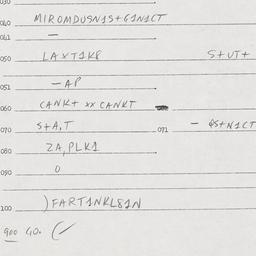 030
040 MIROMDUSN1S+G1N1CT
041 —
050 LAXT1KP S+UT+
— AP
051
060 CANK+ xx CANKT
070 S+A,T 071 — QS+N1CT
080 2A,PLK1
090 0
100 )FART1NKL81N
900 40.